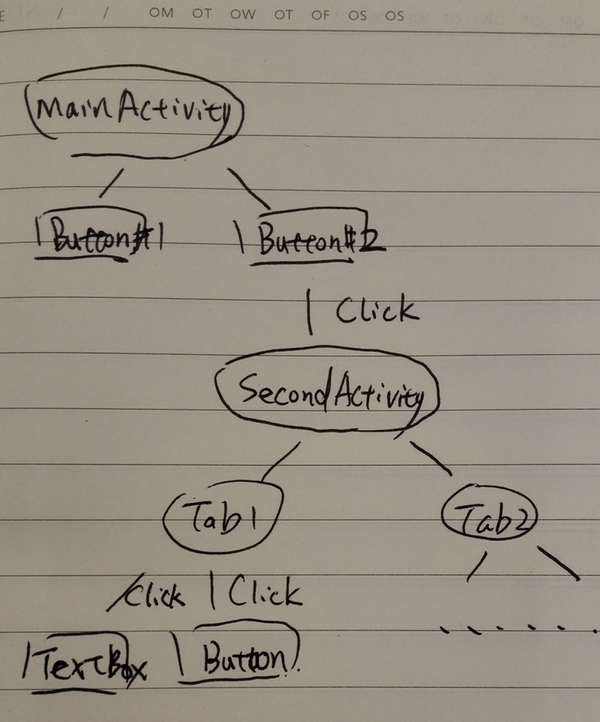 E / / OM OT OW OT OF OS OS
MainActivity
Button#1 Button#2
Click
SecondActivity
Tab1 Tab2
Click Click
TextBox Button